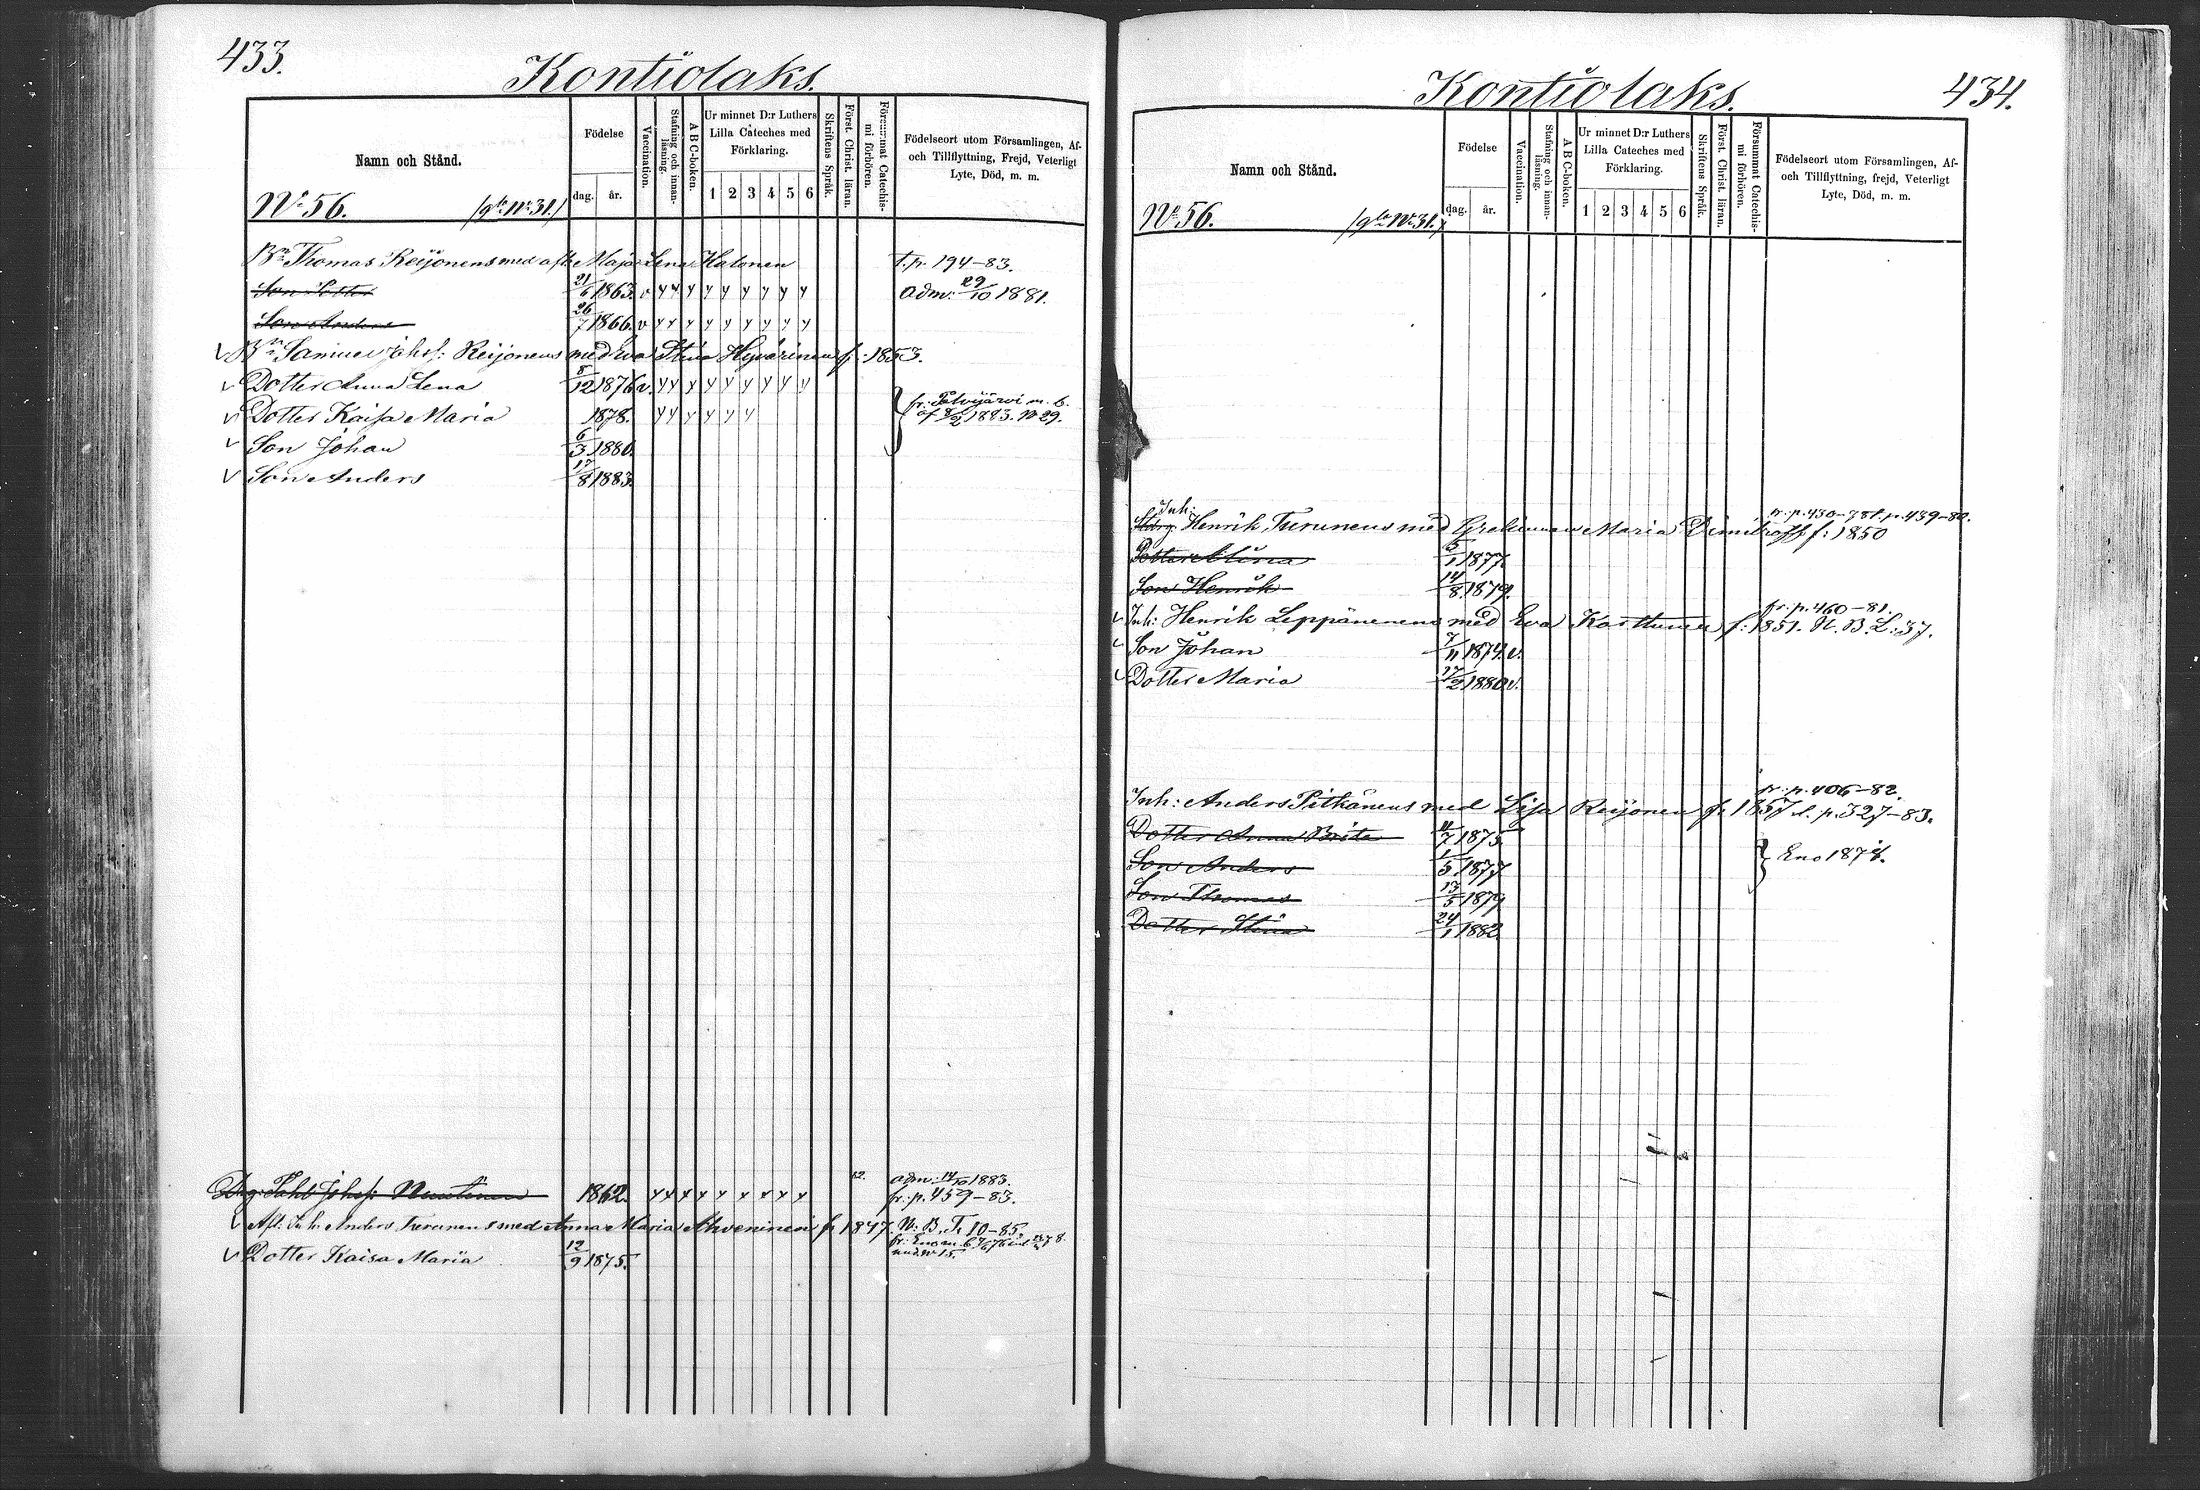 433.
Kontiolaks.
Namn och Stånd.
Födelse
dag. år.
Vaccination.
Stafning och innanläsning.
A B C-boken.
Ur minnet D:r Luthers Lilla Cateches med Förklaring.
1 2 3 4 5 6
Skriftens Språk.
Först. Christ. läran.
Försummat Catechismi förhören.
Födelseort utom Församlingen, Af- och Tillflyttning, Frejd, Veterligt Lyte, Död, m. m.
No 56. /gla No 31./
Bn Thomas Reijonens med afl: Maja Lena Hatonen t.p. 194-83.
Son Petter 21/6 1863. v y y y y y y y y y adm: 29/10 1881.
Son Anders 26/7 1866. v y y y y y y y y y
v Bn Samuel Johss: Reijonens med Eva Stina Hyvärinen f: 1853.
v Dotter Anna Lena 8/12 1876 v. y y y y y y y y y
v Dotter Kaisa Maria 1878. y y y y y y fr: Polvijärvi m. b. af 8/2 1883. N 29.
v Son Johan 6/3 1880.
v Son Anders 17/8 1883.
Johss: 1862. y y y y y y y y y 12. adm: 14/10 1883. fr: p. 459-83.
v Afl. Inh. Anders Turunens med Anna Maria Ahveninen f: 1847. N: B. T. 10-85.
v Dotter Kaisa Maria 12/9 1875.
434.
Kontiolaks.
Namn och Stånd.
Födelse
dag. år.
Vaccination.
Stafning och innanläsning.
A B C-boken.
Ur minnet D:r Luthers Lilla Cateches med Förklaring.
1 2 3 4 5 6
Skriftens Språk.
Först. Christ. läran.
Försummat Catechismi förhören.
Födelseort utom Församlingen, Af- och Tillflyttning, frejd, Veterligt Lyte, Död, m. m.
No 56. /gla No 31./
fr: p. 430-78 t. p. 439-80.
Inh: Henrik Turunens med Maria Dimitroff f: 1850
Dotter Maria 5/1 1877.
Son Henrik 14/8 1879.
fr: p. 460-81.
v Inh: Henrik Leppänenens med Eva Karttunen f: 1851. N. B. L: 37.
v Son Johan 7/11 1874. v.
v Dotter Maria 17/2 1880 v.
fr: p. 406-82.
Inh: Anders Pitkänens med Lisa Reijonen f: 1857 t. p. 327-83.
Dotter Anna Brita 11/7 1875.
Son Anders 1/5 1877 Eno 1878.
Son Thomas 13/5 1879
Dotter Stina 24/1 1882